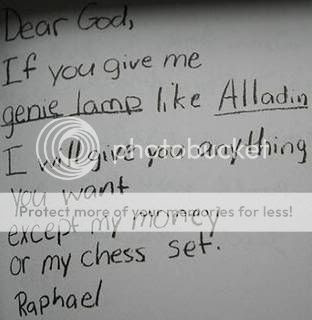 Dear God,
If you give me
genie lamp like Alladin
I will give you anything
photobucket
you want
Protect more of your memories for less!
except my money
or my chess set.
Raphael